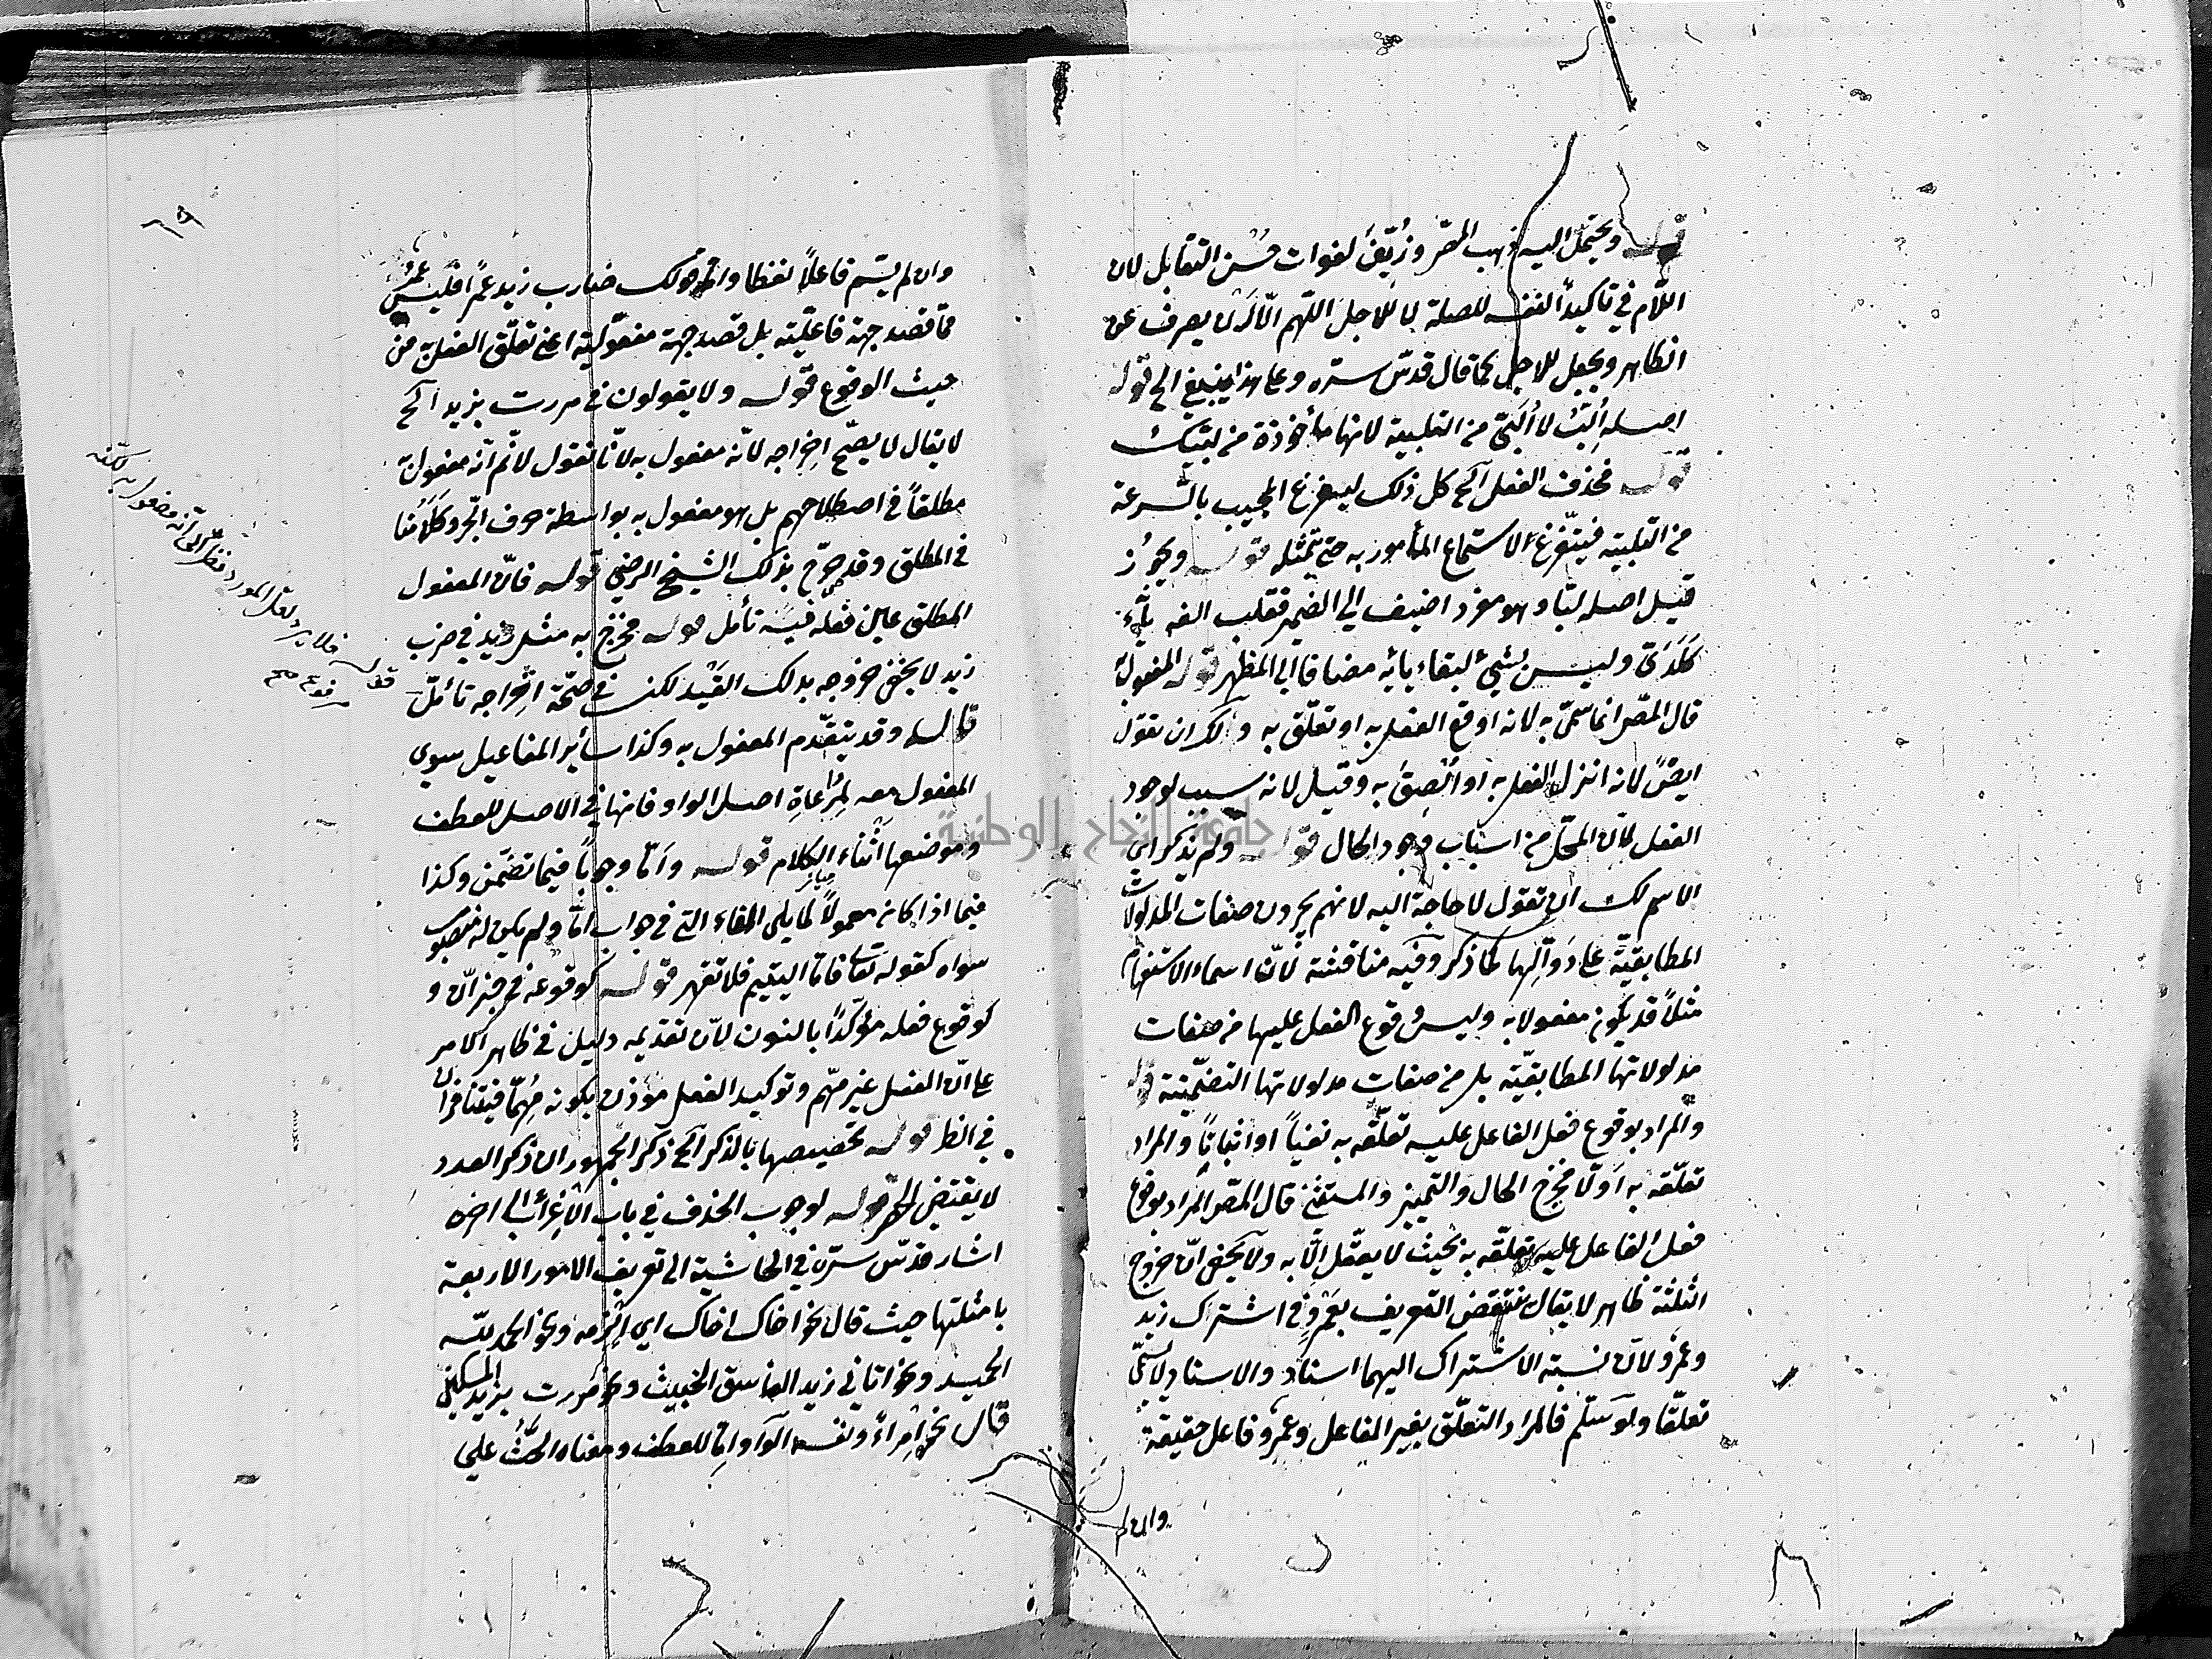 قوله ويحتمل اليه ذهب المصر وزُيّفَ لفوات حُسن التقابل لان
اللّام في تاكيداً لنفسه للصلة لا للاجل اللّهم الّا ان يصرف عن
الظاهر ويجعل للاجل كما قال قدّس سرّه وعلى هذا ينبغي الخ قوله
اصله أُلبّ لا أُلَبّي من التلبية لانها مأخوذة من لبّيك
قوله فحذف الفعل آلخ كل ذلك ليفرغ المجيب بالسّرعة
من التلبية فيتّفرغ لاستماع المأمور به حتى يتمثله قوله ويجوز
قيل اصله لبّا وهو مفرد اضيف الى الضمير فقلب الفه ياءً
كَلَدَىّ وليس بشيئ لبقاء يائه مضافا الى المظهر قوله المفعول
قال المصّر انما سمّى به لانه اوقع الفعل به او تعلّق به ولك ان تقول
ايضً لانه انزل الفعل به او اُلصِقَ به وقيل لانه سبب لوجود
الفعل لانّ المحلّ من اسباب وجود الحال قوله ولم يذكر اي
الاسم لك ان تقول لا حاجة اليه لانهم يجرون صفات المدلولات
المطابقيّة على دَوَالّها كما ذكر وفيه مناقشة لانّ اسماء الاستفهام
مثلاً قد يكون مفعولا به وليس وقوع الفعل عليها من صفات
مدلولاتها المطابقيّة بل من صفات مدلولاتها التضمّنية قوله
والمراد بوقوع فعل الفاعل عليه تعلّقه به نفياً او اثباتاً والمراد
تعلّقه به اَوّلا فخرج الحال والتمييز والمستثنى قال المصّر المراد بوقوع
فعل الفاعل عليه تعلّقه به بحيث لا يعقل الّا به ولا يخفى انّ خروج
الثلثة ظاهر لا يقال ينتقض التعريف بعَمْروٍ في اشترك زيد
وعمرو لانّ نسبة الاشتراك اليهما اسناد والاسناد لا يسمّى
تعلّقا ولو سَلّم فالمراد التعلّق بغير الفاعل وعمرو فاعل حقيقة
وان لم
وان لم يسّم فاعلاً لفظا وامّا قولك ضارب زيد عمرًا فليس عمرو
ممّا قصد جهة فاعليّته بل قصد جهة مفعوليّته اعنى تعلّق الفعل به من
حيث الوقوع قوله ولا يقولون في مررت بزيد آلخ
لا يقال لا يصّح اخراجه لانّه مفعول به لانّا نقول لا نّم انّه مفعول به
مطلقاً في اصطلاحهم بل هو مفعول به بواسطة حرف الجّر وكلامُنا
في المطلق وقد صرّح بذلك الشيخ الرضي قوله فانّ المفعول
المطلق عين فعله فيه تأمل قوله فخرج به مثل زيد في ضرب
زيد لا يخفى خروجه بذلك القَيْد لكن في صحّة اخراجه تأمّل
قال وقد يتقدّم المفعول به وكذا سأير المفاعيل سوى
المفعول معه لمراعاةِ اصل الواو فانها في الاصل للعطف
وموضعها اَثْناء الكلام قوله وامّا وجوباً فيما تضمّن وكذا
فيما اذا كان معمولاً لما يلى الفاء التي في جواب امّا ولم يكن له منصوب
سواه كقوله تعالى فامّا اليتيم فلا تقهر قوله كوقوعه في حيز انّ و
كوقوع فعله مؤكّداً بالنون لانّ تقديمه دليل في ظاهر الامر
على انّ الفعل غير مهّم وتوكيد الفعل مؤذن بكونه مُهمّا فيتنافران
في الظ قوله تخصيصها بالذكر آلخ ذكر الجمهور ان ذكر العدد
لا يقتضى الحصر قوله لوجوب الحذف في باب الاِغراء الى اخره
اشار قدّس سرّه في الحاشية الى تعريف الامور الاربعة
بامثلتها حيث قال نحو اخاك اخاك اي اِلْزمه ونحو الحمد للّه
الحميد ونحو اتاني زيد الفاسق الخبيث ونحو مررت بزيد المسكين
قال نحو اِمراءً ونفسه الواو امّا للعطف ومعناه الحثّ على